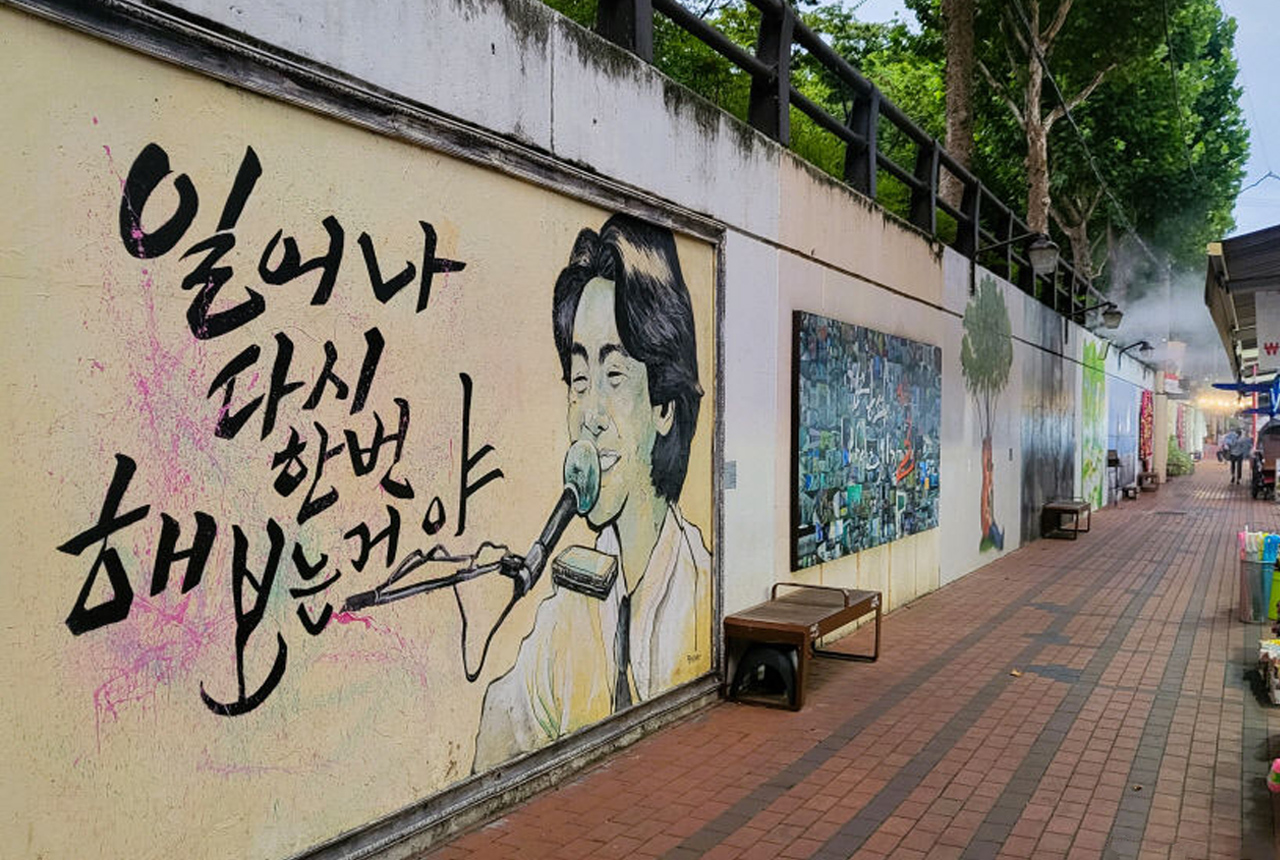 일어나
다시
한번
해보는거야
₩